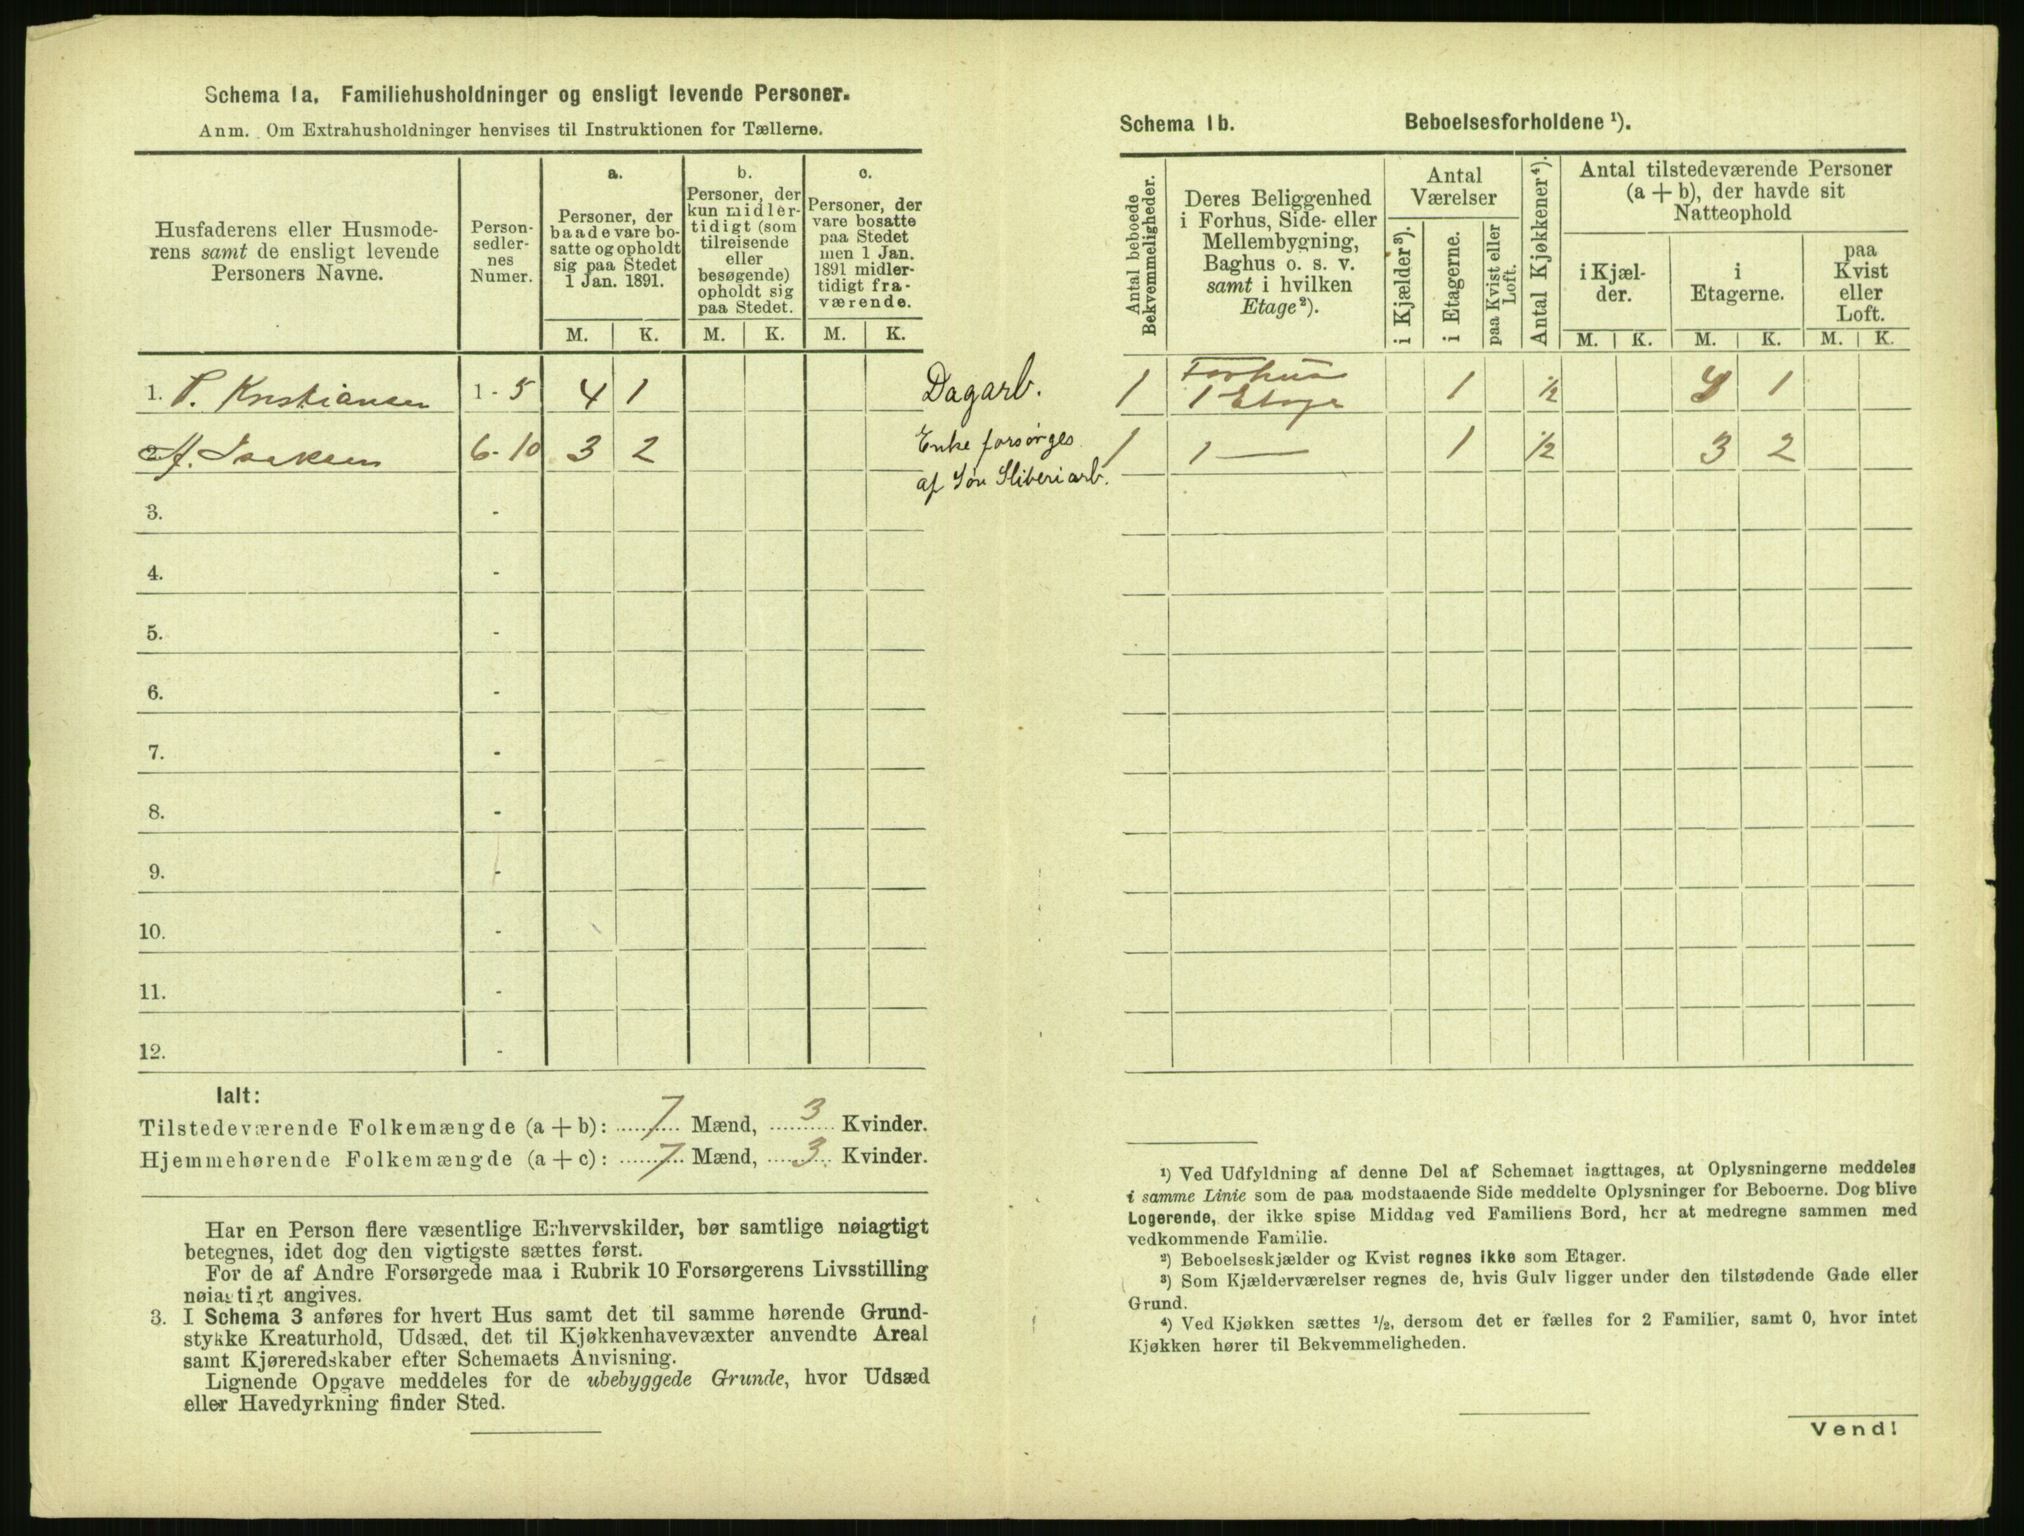 Schema 1a. Familiehusholdninger og ensligt levende Personer.
Anm. Om Extrahusholdninger henvises til Instruktionen for Tællerne.
Husfaderens eller Husmode-
rens samt de ensligt levende
Personers Navne.
Person-
sedler-
nes
Numer.
a.
Personer, der
baade vare bo-
satte og opholdt
sig paa Stedet
1 Jan. 1891.
b.
Personer, der
kun midler-
tidigt (som
tilreisende
eller
besøgende)
opholdt sig
paa Stedet.
c.
Personer, der
vare bosatte
paa Stedet
men 1 Jan.
1891 midler-
tidigt fra-
værende.
M. K. M. K. M. K.
1. P. Kristiansen 1 - 5 4 1 Dagarb.
2. A. Isaksen 6 - 10 3 2 Enke forsørges
af Søn Sliberiarb.
3. -
4. -
5. -
6. -
7. -
8. -
9. -
10. -
11. -
12. -
Ialt:
Tilstedeværende Folkemængde (a + b): 7 Mænd, 3 Kvinder.
Hjemmehørende Folkemængde (a + c): 7 Mænd, 3 Kvinder.
Har en Person flere væsentlige Erhvervskilder, bør samtlige nøiagtigt
betegnes, idet dog den vigtigste sættes først.
For de af Andre Forsørgede maa i Rubrik 10 Forsørgerens Livsstilling
nøiagtigt angives.
3. I Schema 3 anføres for hvert Hus samt det til samme hørende Grund-
stykke Kreaturhold, Udsæd, det til Kjøkkenhavevæxter anvendte Areal
samt Kjøreredskaber efter Schemaets Anvisning.
Lignende Opgave meddeles for de ubebyggede Grunde, hvor Udsæd
eller Havedyrkning finder Sted.
Schema 1b. Beboelsesforholdene ¹).
Antal beboede
Bekvemmeligheder.
Deres Beliggenhed
i Forhus, Side- eller
Mellembygning,
Baghus o. s. v.
samt i hvilken
Etage ²).
Antal
Værelser
i Kjælder ³).
i Etagerne.
paa Kvist eller
Loft.
Antal Kjøkkener ⁴).
Antal tilstedeværende Personer
(a + b), der havde sit
Natteophold
i Kjæl-
der.
i
Etagerne.
paa
Kvist
eller
Loft.
M. K. M. K. M. K.
1 Forhus
1 Etage 1 ½ 4 1
1 1 — 1 ½ 3 2
¹) Ved Udfyldning af denne Del af Schemaet iagttages, at Oplysningerne meddeles
i samme Linie som de paa modstaaende Side meddelte Oplysninger for Beboerne. Dog blive
Logerende, der ikke spise Middag ved Familiens Bord, her at medregne sammen med
vedkommende Familie.
²) Beboelseskjælder og Kvist regnes ikke som Etager.
³) Som Kjælderværelser regnes de, hvis Gulv ligger under den tilstødende Gade eller
Grund.
⁴) Ved Kjøkken sættes ½, dersom det er fælles for 2 Familier, samt 0, hvor intet
Kjøkken hører til Bekvemmeligheden.
Vend!